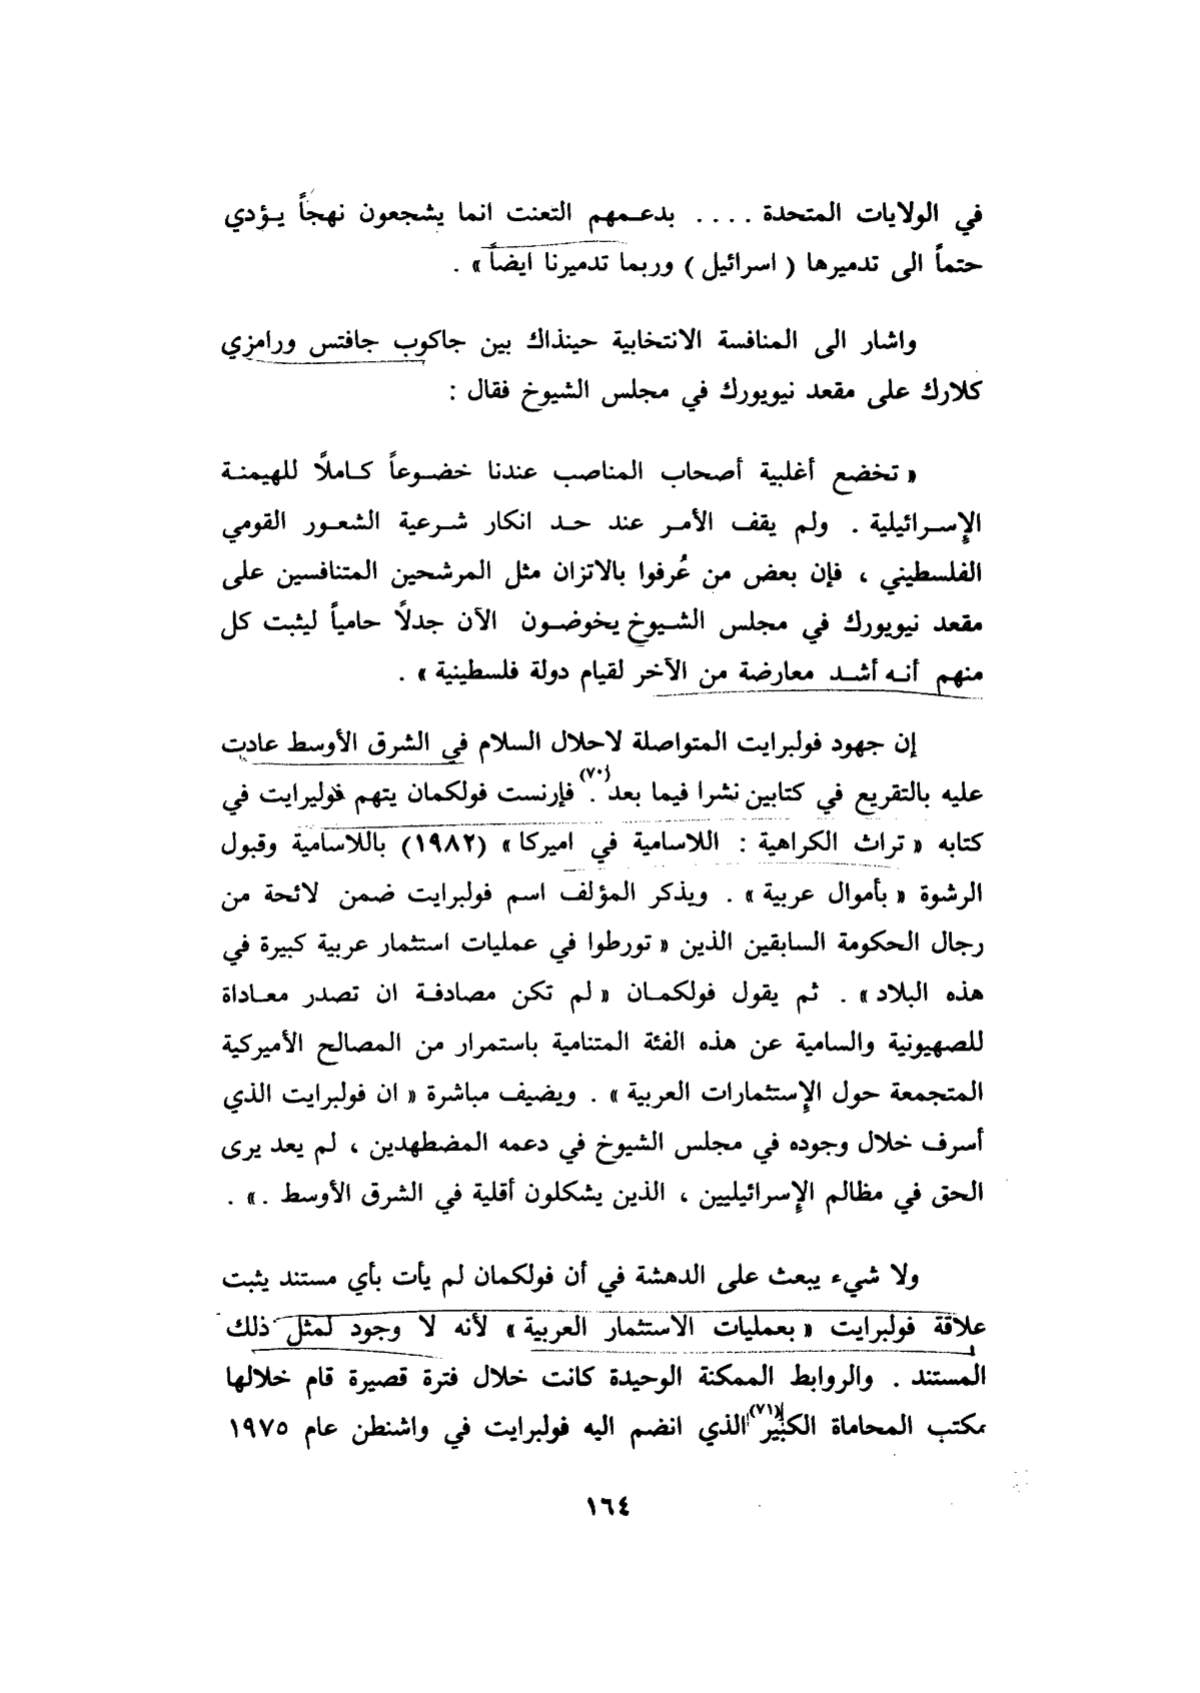 في الولايات المتحدة .... بدعمهم التعنت انما يشجعون نهجاً يؤدي
حتماً الى تدميرها ( اسرائيل ) وربما تدميرنا ايضاً » .
واشار الى المنافسة الانتخابية حينذاك بين جاكوب جافتس ورامزي
كلارك على مقعد نيويورك في مجلس الشيوخ فقال :
« تخضع أغلبية أصحاب المناصب عندنا خضوعاً كاملًا للهيمنة
الإسرائيلية . ولم يقف الأمر عند حد انكار شرعية الشعور القومي
الفلسطيني ، فإن بعض من عُرفوا بالاتزان مثل المرشحين المتنافسين على
مقعد نيويورك في مجلس الشيوخ يخوضون الآن جدلًا حامياً ليثبت كل
منهم أنه أشد معارضة من الآخر لقيام دولة فلسطينية » .
إن جهود فولبرايت المتواصلة لاحلال السلام في الشرق الأوسط عادت
عليه بالتقريع في كتابين نشرا فيما بعد(٧٠) . فإرنست فولكمان يتهم فوليرايت في
كتابه « تراث الكراهية : اللاسامية في اميركا » (١٩٨٢) باللاسامية وقبول
الرشوة « بأموال عربية » . ويذكر المؤلف اسم فولبرايت ضمن لائحة من
رجال الحكومة السابقين الذين « تورطوا في عمليات استثمار عربية كبيرة في
هذه البلاد » . ثم يقول فولكمان « لم تكن مصادفة ان تصدر معاداة
للصهيونية والسامية عن هذه الفئة المتنامية باستمرار من المصالح الأميركية
المتجمعة حول الإستثمارات العربية » . ويضيف مباشرة « ان فولبرايت الذي
أسرف خلال وجوده في مجلس الشيوخ في دعمه المضطهدين ، لم يعد يرى
الحق في مظالم الإسرائيليين ، الذين يشكلون أقلية في الشرق الأوسط . » .
ولا شيء يبعث على الدهشة في أن فولكمان لم يأت بأي مستند يثبت
علاقة فولبرايت « بعمليات الاستثمار العربية » لأنه لا وجود لمثل ذلك
المستند . والروابط الممكنة الوحيدة كانت خلال فترة قصيرة قام خلالها
مكتب المحاماة الكبير(٧١) الذي انضم اليه فولبرايت في واشنطن عام ١٩٧٥
١٦٤